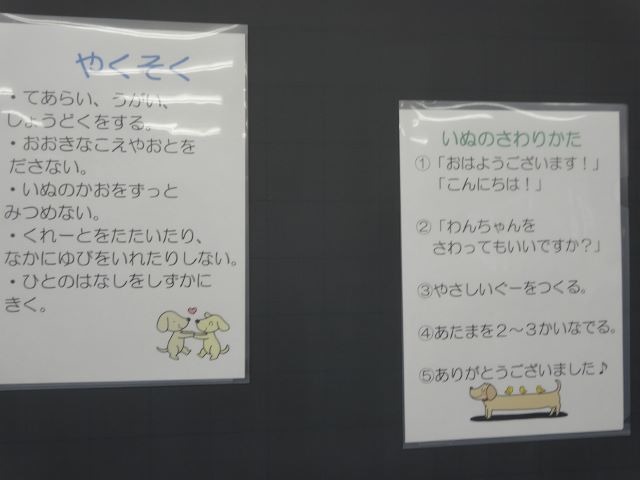 やくそく
・てあらい、うがい、
しょうどくをする。
・おおきなこえやおとを
ださない。
・いぬのかおをずっと
みつめない。
・くれーとをたたいたり、
なかにゆびをいれたりしない。
・ひとのはなしをしずかに
きく。
いぬのさわりかた
①「おはようございます！」
「こんにちは！」
②「わんちゃんを
さわってもいいですか？」
③やさしいぐーをつくる。
④あたまを２～３かいなでる。
⑤ありがとうございました♪